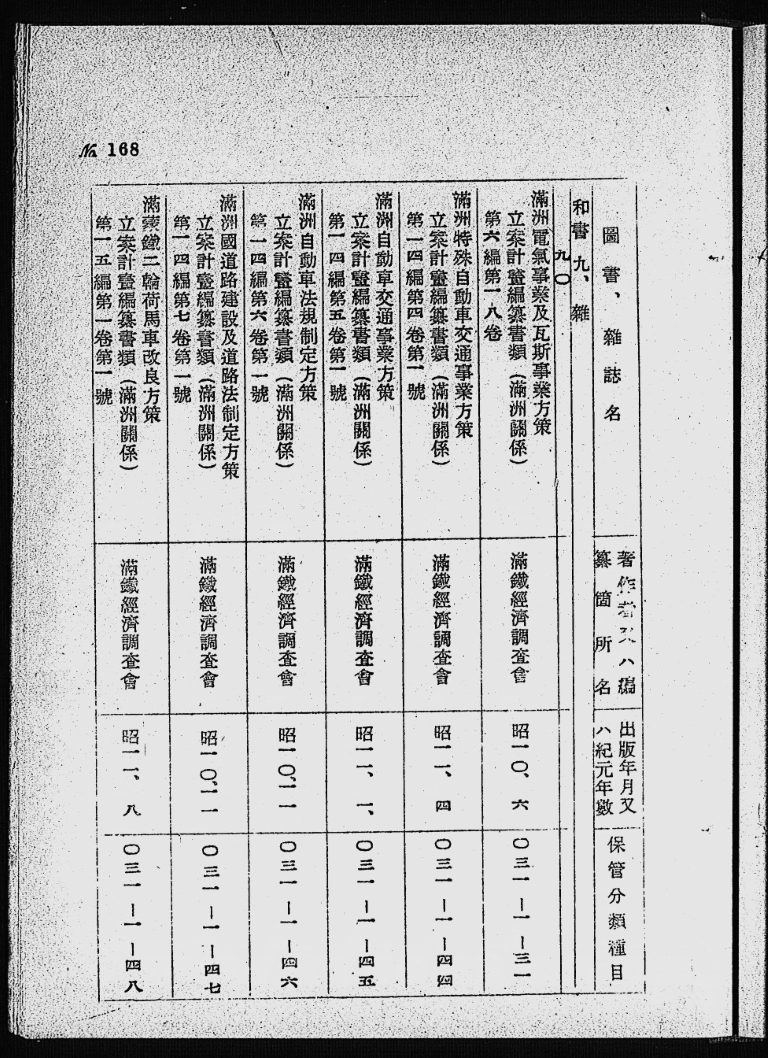 № 168
圖書、雜誌名
著作者又ハ編
纂箇所名
出版年月又
ハ紀元年數
保管分類種目
和書九、雜
九〇
滿洲電氣事業及瓦斯事業方策
立案計畫編纂書類(滿洲關係)
第六編第一八卷
滿鐵經濟調査會
昭一〇、六
〇三一―一―三一
滿洲特殊自動車交通事業方策
立案計畫編纂書類(滿洲關係)
第一四編第四卷第一號
滿鐵經濟調査會
昭一一、四
〇三一―一―四四
滿洲自動車交通事業方策
立案計畫編纂書類(滿洲關係)
第一四編第五卷第一號
滿鐵經濟調査會
昭一一、一、
〇三一―一―四五
滿洲自動車法規制定方策
立案計畫編纂書類(滿洲關係)
第一四編第六卷第一號
滿鐵經濟調査會
昭一〇、一一
〇三一―一―四六
滿洲國道路建設及道路法制定方策
立案計畫編纂書類(滿洲關係)
第一四編第七卷第一號
滿鐵經濟調査會
昭一〇、一一
〇三一―一―四七
滿蒙鐵二輪荷馬車改良方策
立案計畫編纂書類(滿洲關係)
第一五編第一卷第一號
滿鐵經濟調査會
昭一一、八
〇三一―一―四八